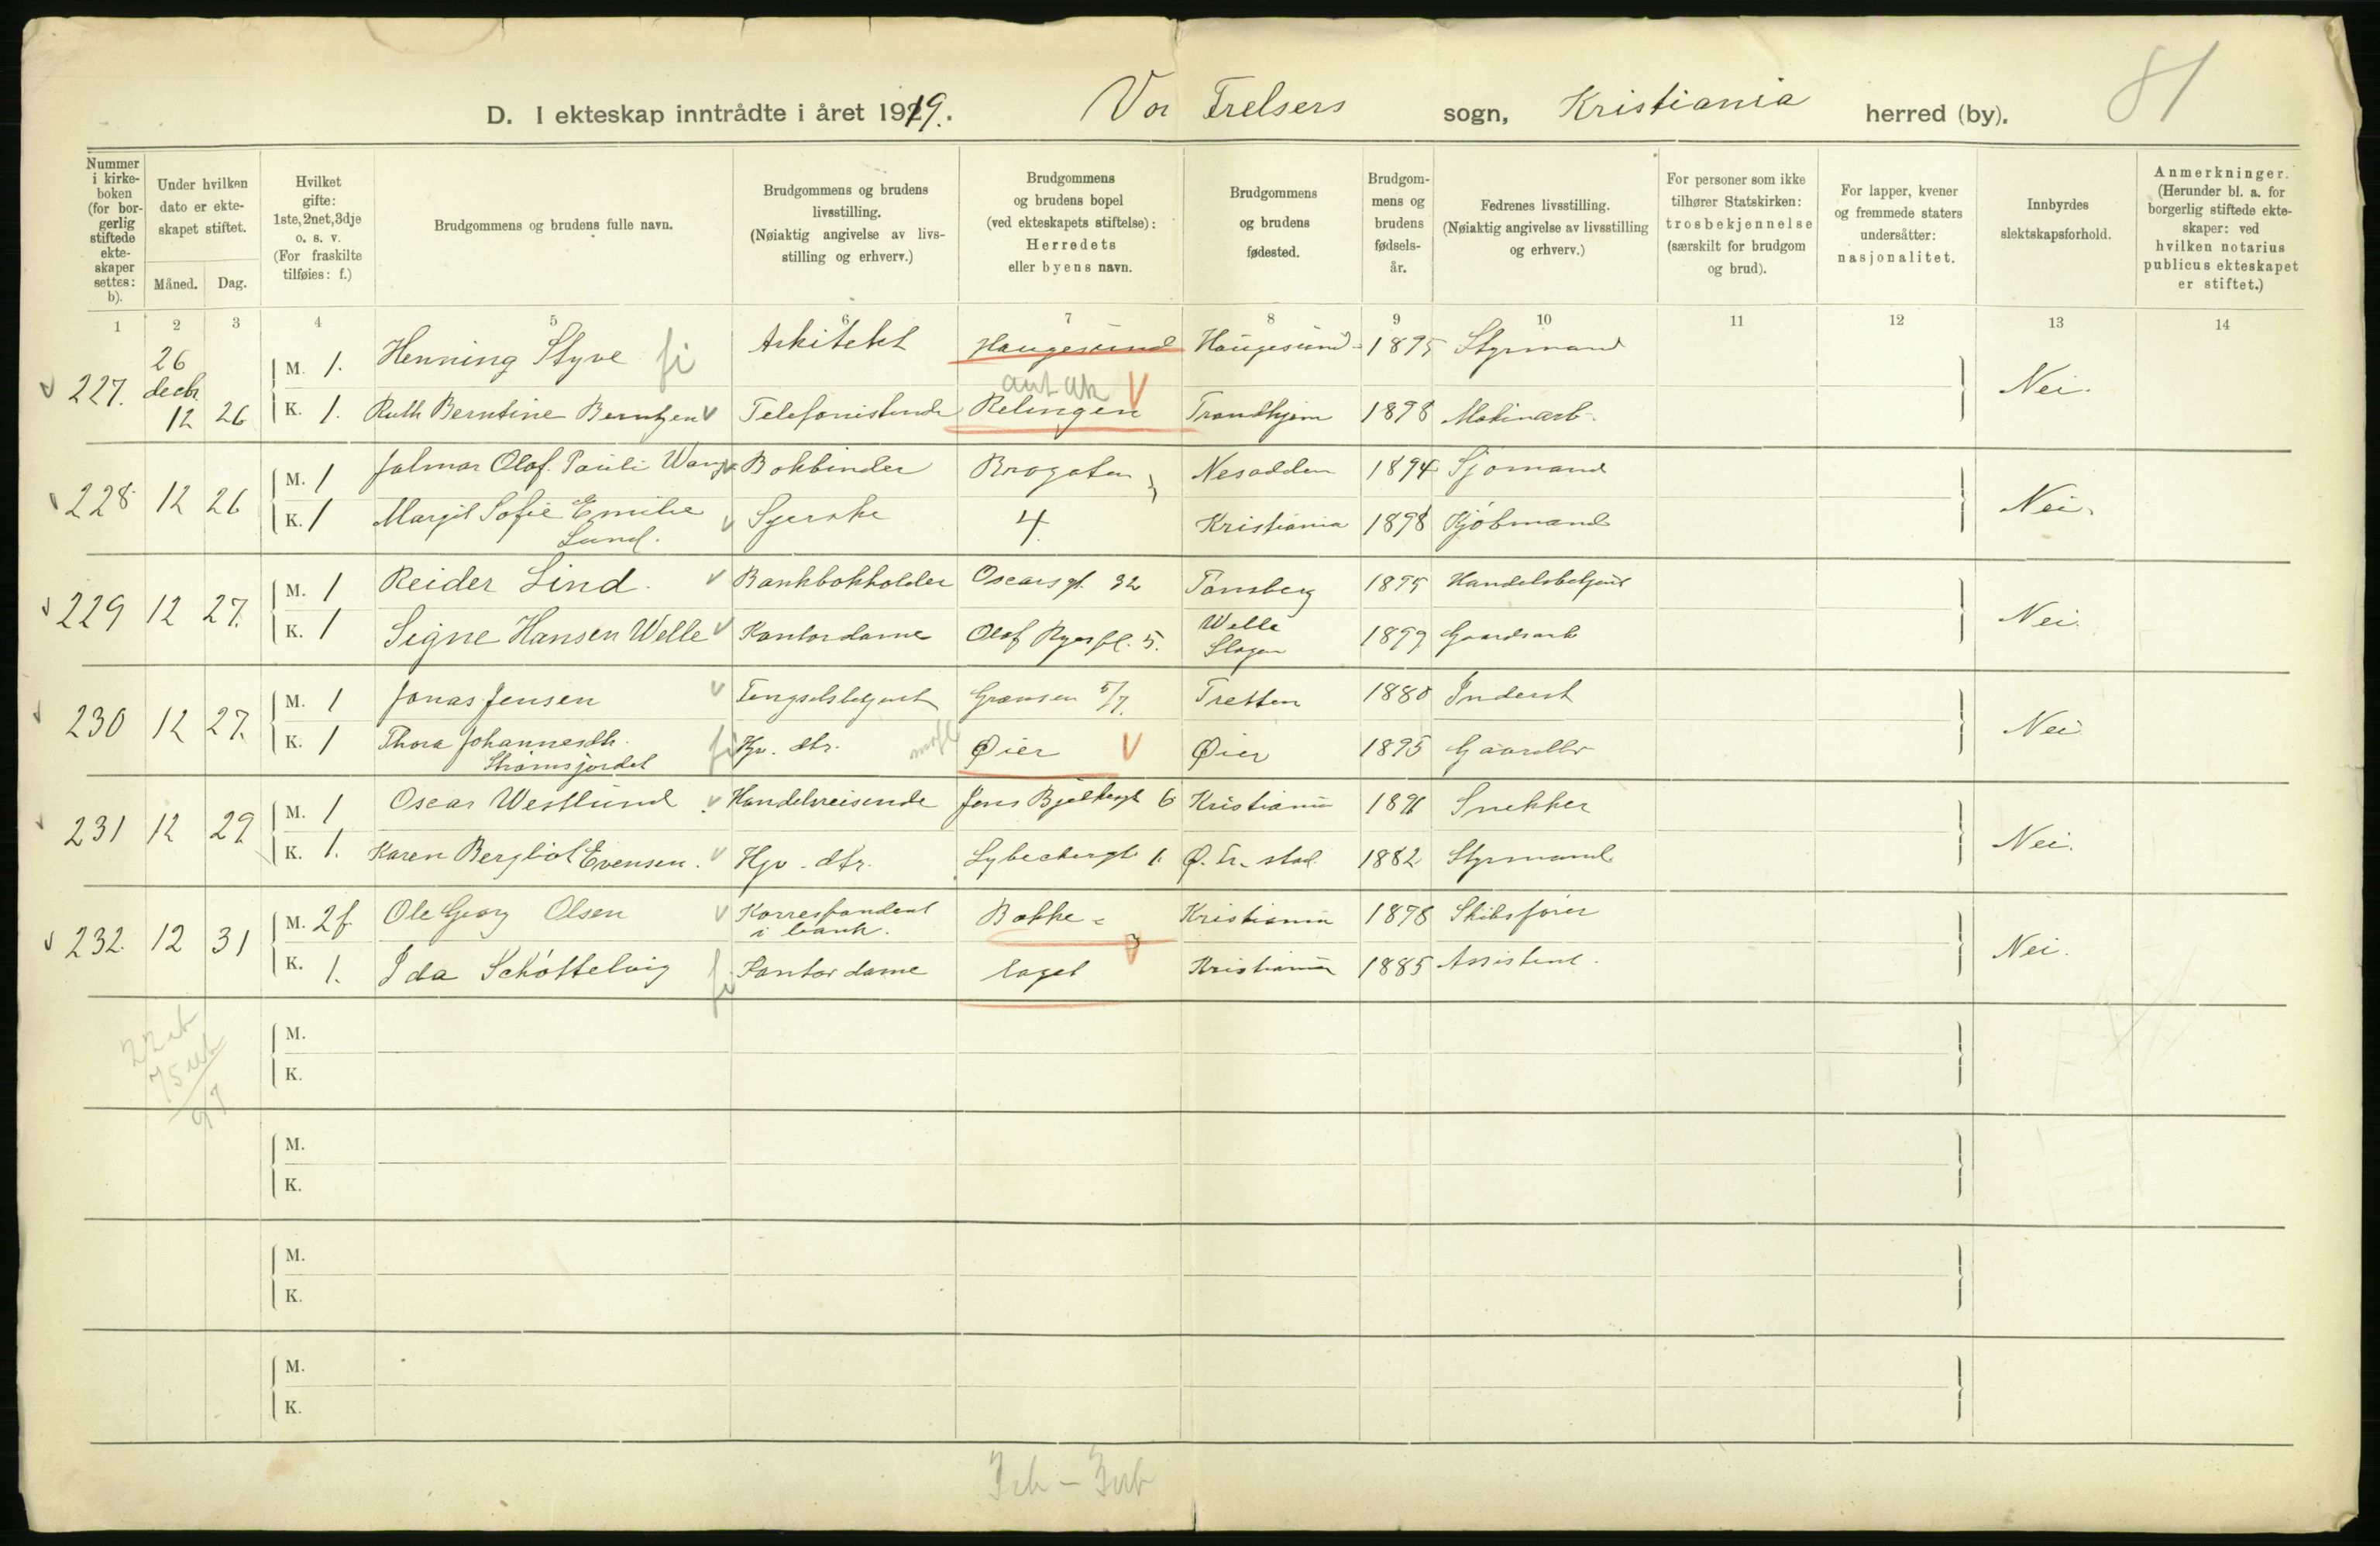 D. I ekteskap inntrådte i året 1919. Vor Frelsers sogn, Kristiania herred (by). 81
Nummer i kirkeboken (for borgerlig stiftede ekteskaper settes: b).
Under hvilken dato er ekteskapet stiftet.
Måned. Dag.
Hvilket gifte: 1ste, 2net, 3dje o. s. v. (For fraskilte tilføies: f.)
Brudgommens og brudens fulle navn.
Brudgommens og brudens livsstilling. (Nøiaktig angivelse av livsstilling og erhverv.)
Brudgommens og brudens bopel (ved ekteskapets stiftelse): Herredets eller byens navn.
Brudgommens og brudens fødested.
Brudgommens og brudens fødselsår.
Fedrenes livsstilling. (Nøiaktig angivelse av livsstilling og erhverv.)
For personer som ikke tilhører Statskirken: trosbekjennelse (særskilt for brudgom og brud).
For lapper, kvener og fremmede staters undersåtter: nasjonalitet.
Innbyrdes slektskapsforhold.
Anmerkninger. (Herunder bl. a. for borgerlig stiftede ekteskaper: ved hvilken notarius publicus ekteskapet er stiftet.)
1 2 3 4 5 6 7 8 9 10 11 12 13 14
26 decbr
227. 12 26 M. 1. Henning Styve fi Arkitekt Haugesund Haugesund 1895 Styrmand Nei.
K. 1. Ruth Berntine Berntzen Telefonistinde Relingen Trondhjem 1898 Maskinarb.
228 12 26 M. 1 Jalmar Olaf Pauli Wang Bokbinder Brogaten Nesodden 1894 Sjømand Nei.
K. 1 Margit Sofie Emilie Lund. Syerske 4. Kristiania 1898 Kjøbmand
229 12 27. M. 1 Reider Lind. Bankbokholder Oscarsgt. 32 Tønsberg 1895 Handelsbetjent Nei.
K. 1 Signe Hansen Welle Kontordame Olaf Ryes pl. 5. Welle Slagen 1899 Gaardsarb
230 12 27. M. 1 Jonas Jensen Fengselsbetjent Grænsen 5/7. Tretten 1880 Inderst Nei
K. 1 Thora Johannesdtr. Strømsjordet fi Hjv. dtr. Øier Øier 1895 Gaardbr
231 12 29 M. 1 Oscar Westlund Handelsreisende Jens Bjelkesgt 6 Kristiania 1891 Snekker Nei.
K. 1. Karen Bergliot Evensen. Hjv. dtr. Lybeckergt 1. 1882 Styrmand
232. 12 31 M. 2 f. Ole Georg Olsen Korrespondent i bank. Bakke- Kristiania 1878 Skibsfører Nei.
K. 1. Ida Schøttelvig fi Kontordame laget Kristiania 1885 Assistent.
M.
K.
M.
K.
M.
K.
M.
K.
97